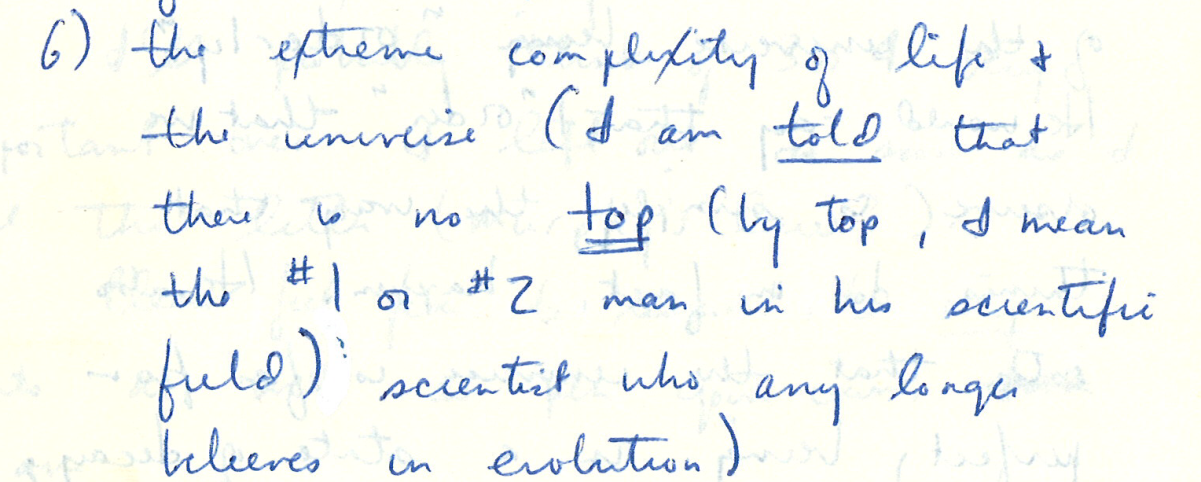 6) the extreme complexity of life &
the universe (I am told that
there is no top (by top, I mean
the #1 or #2 man in his scientific
field) scientist who any longer
believes in evolution)